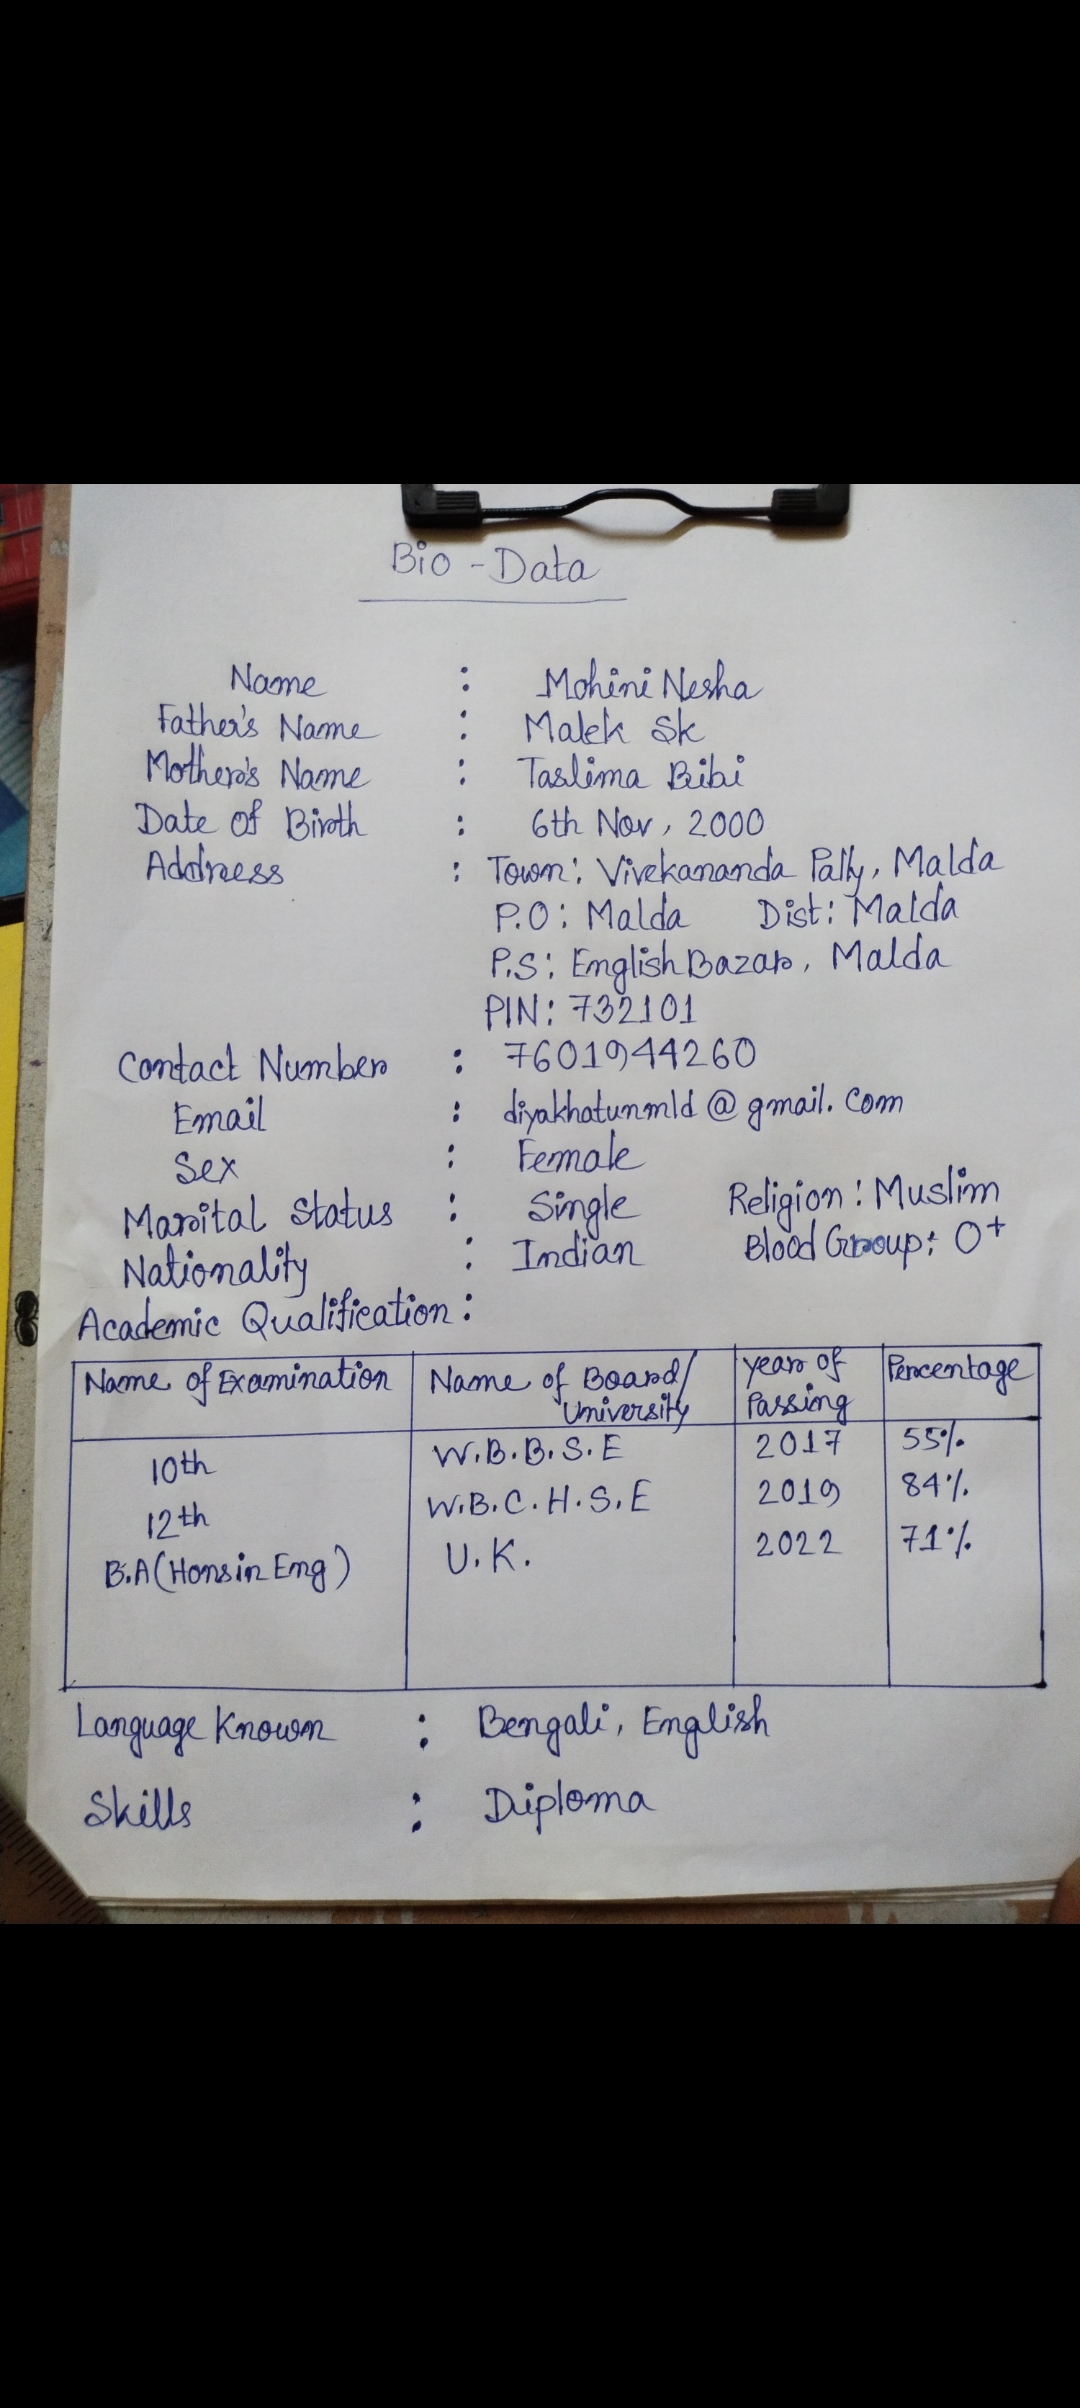 Bio - Data
Name : Mohini Nesha
Father's Name : Malek Sk
Mother's Name : Taslima Bibi
Date of Birth : 6th Nov, 2000
Address : Town: Vivekananda Pally, Malda
P.O: Malda Dist: Malda
P.S: English Bazar, Malda
PIN: 732101
Contact Number : 7601944260
Email : diyakhatunmld@gmail.com
Sex : Female
Marital Status : Single Religion: Muslim
Nationality : Indian Blood Group: O+
Academic Qualification:
Name of Examination Name of Board/ University year of Passing Percentage
10th W.B.B.S.E 2017 55%
12th W.B.C.H.S.E 2019 84%
B.A (Hons in Eng) U.K. 2022 71%
Language Known : Bengali, English
Skills : Diploma